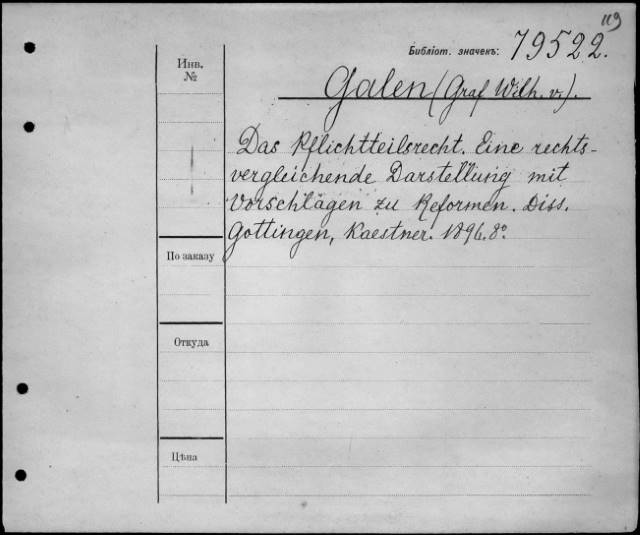 119
Библіот. значекъ: 79522.
Инв.
№
Galen (Graf Wilh. v.).
Das Pflichtteilsrecht. Eine rechts-
vergleichende Darstellung mit
Vorschlägen zu Reformen. Diss.
Göttingen, Kaestner. 1896. 8°.
По заказу
Откуда
Цѣна